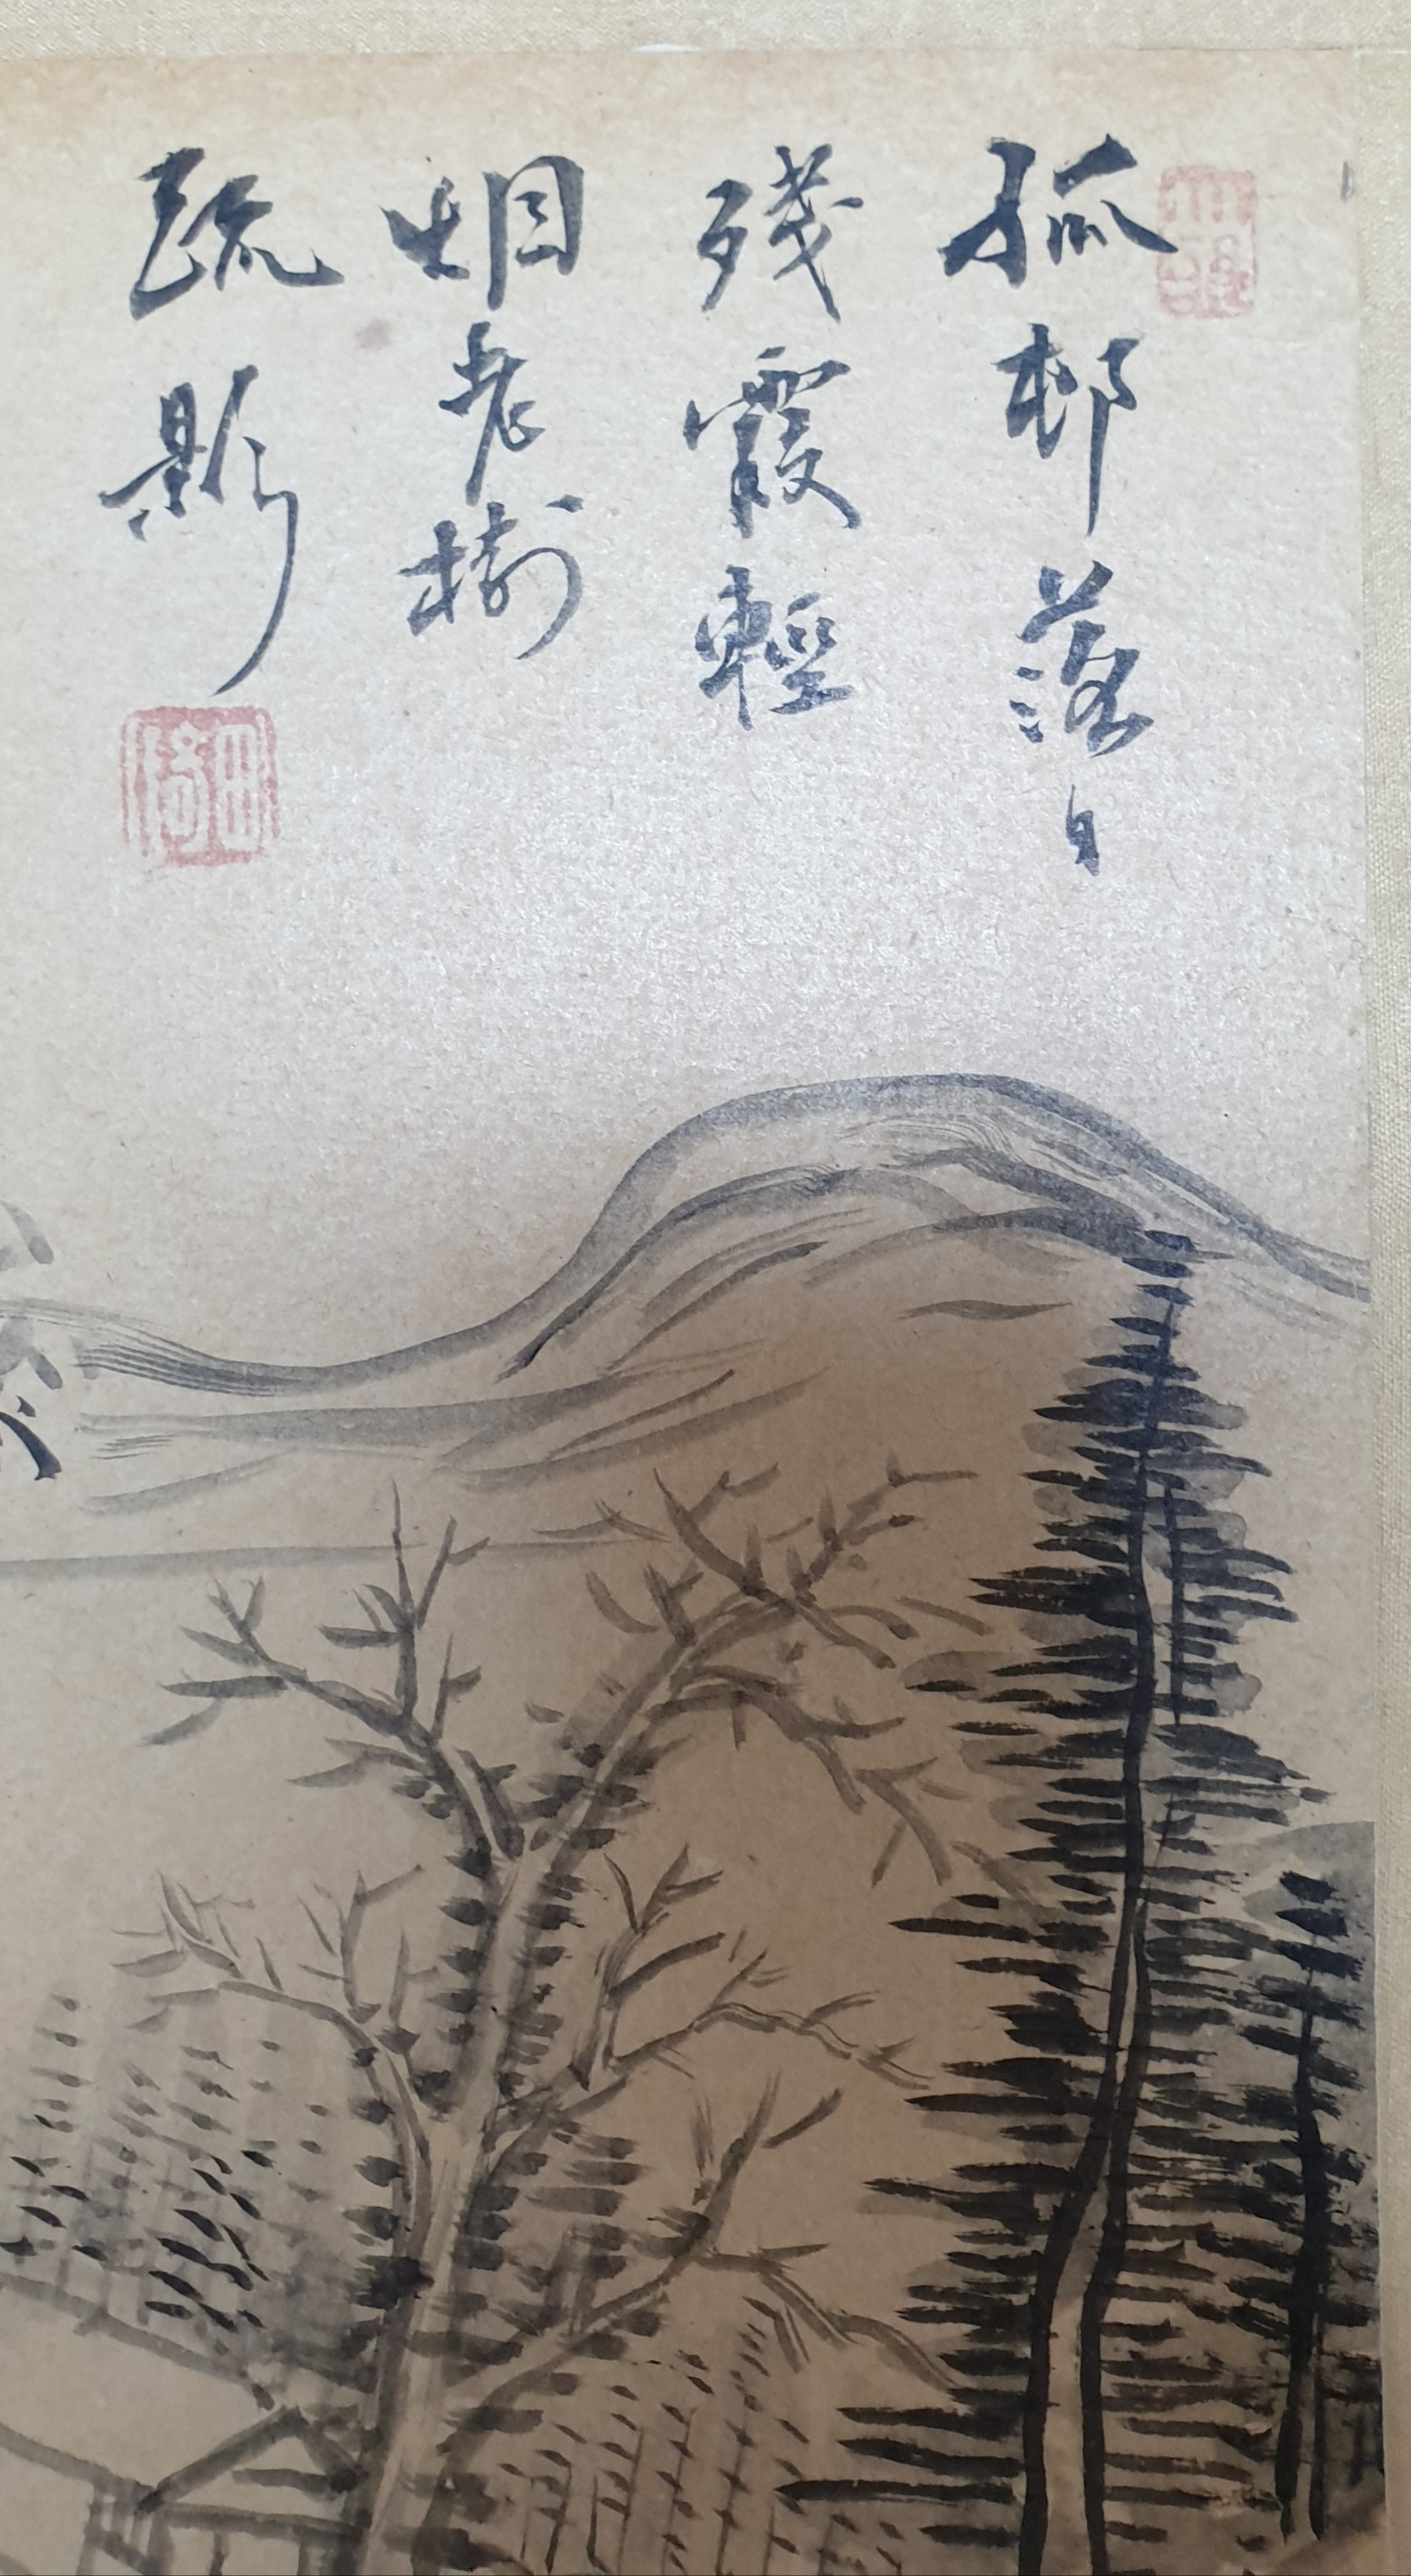 孤邨落日
殘霞輕
烟老樹
疏影